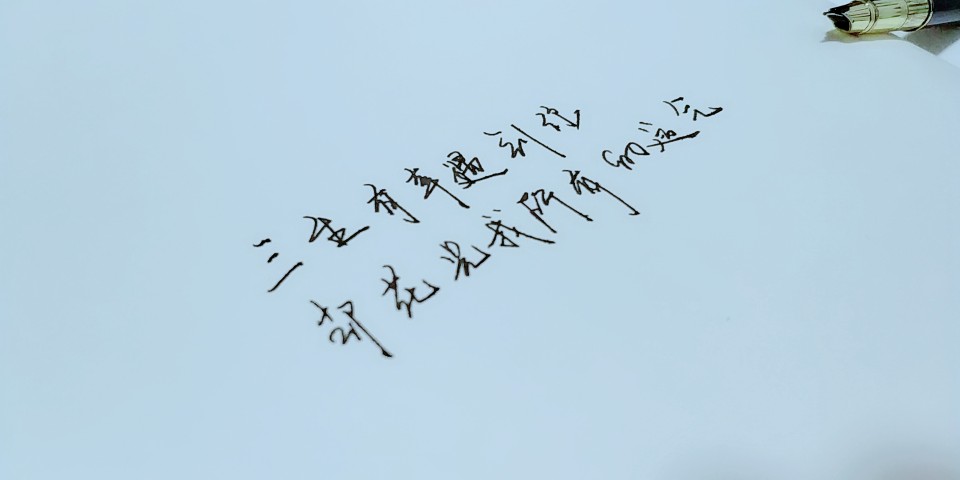 三生有幸遇到你
都花光我所有的运气